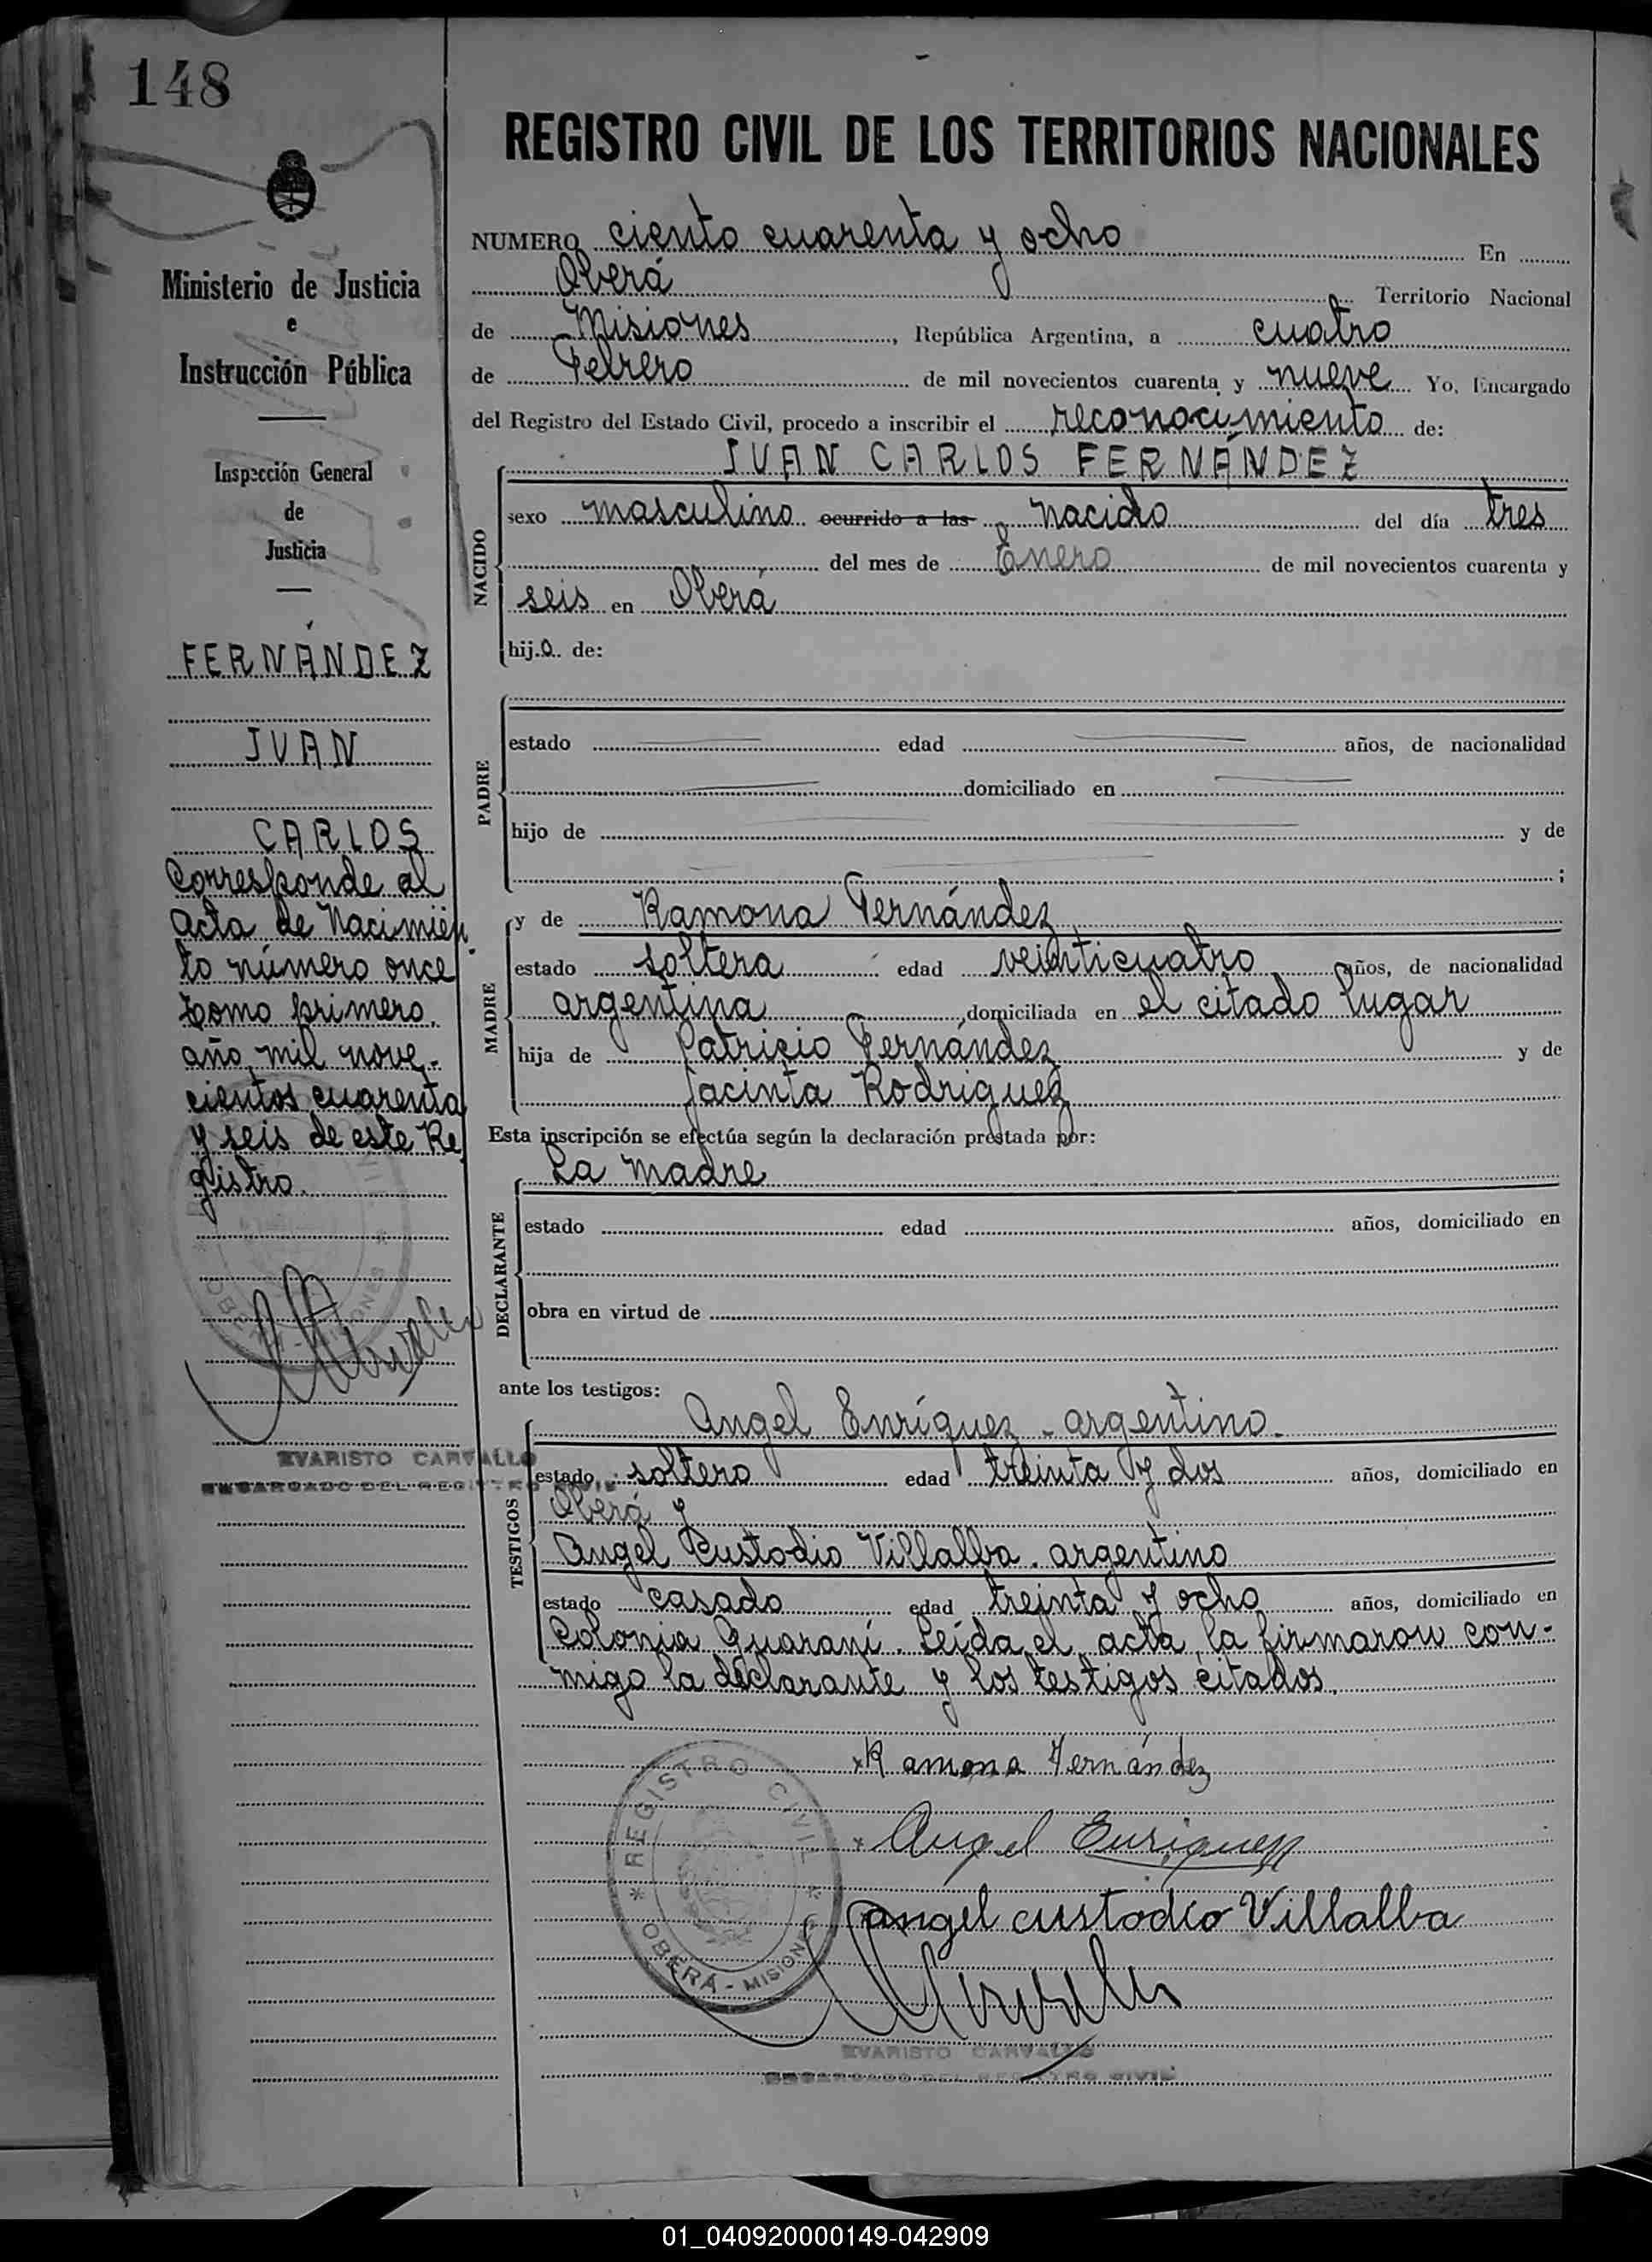 148
REGISTRO CIVIL DE LOS TERRITORIOS NACIONALES
Ministerio de Justicia
e
Instrucción Pública
Inspección General
de
Justicia
FERNÁNDEZ
JUAN
CARLOS
Corresponde al
Acta de Nacimien
to número once
tomo primero,
año mil nove-
cientos cuarenta
y seis de este Re
gistro.
EVARISTO CARVALLO
ENCARGADO DEL REGISTRO CIVIL
NUMERO ciento cuarenta y ocho En
Oberá Territorio Nacional
de Misiones, República Argentina, a cuatro
de Febrero de mil novecientos cuarenta y nueve Yo, Encargado
del Registro del Estado Civil, procedo a inscribir el reconocimiento de:
JUAN CARLOS FERNÁNDEZ
NACIDO
sexo masculino ocurrido a las nacido del día tres
del mes de Enero de mil novecientos cuarenta y
seis en Oberá
hijo de:
PADRE
estado edad años, de nacionalidad
domiciliado en
hijo de y de
;
MADRE
y de Ramona Fernández
estado soltera edad veinticuatro años, de nacionalidad
argentina, domiciliada en el citado lugar
hija de Patricio Fernández y de
Jacinta Rodriguez
Esta inscripción se efectúa según la declaración prestada por:
La madre
DECLARANTE
estado edad años, domiciliado en
obra en virtud de
ante los testigos:
TESTIGOS
Angel Enríquez - argentino.
estado soltero edad treinta y dos años, domiciliado en
Oberá y
Angel Custodio Villalba. argentino
estado casado edad treinta y ocho años, domiciliado en
Colonia Guaraní. Leída el acta, la firmaron con-
migo la declarante y los testigos citados.
x Ramona Fernández
x Angel Enriquez
angel custodio Villalba
REGISTRO CIVIL
OBERÁ - MISIONES
EVARISTO CARVALLO
ENCARGADO DEL REGISTRO CIVIL
01_040920000149-042909